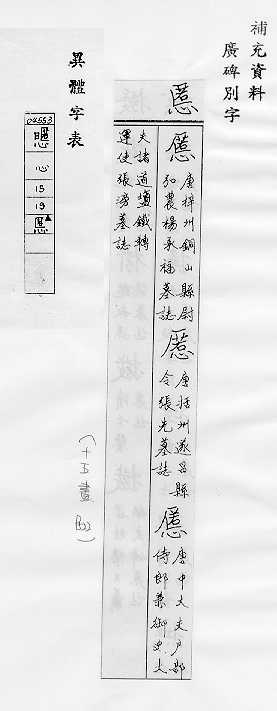 補充資料
廣碑別字
慝
慝 唐梓州銅山縣尉
弘農楊承福墓誌
慝 唐括州遂昌縣
令張先墓誌
慝 唐中大夫戶部
侍郎兼御史大
夫諸道鹽鐵轉
運使張滂墓誌
(十五畫
異體字表
04553
心
15
19